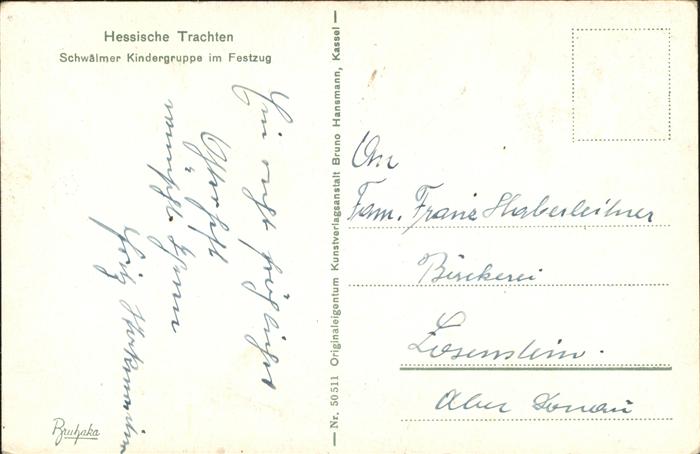 Hessische Trachten
Schwälmer Kindergruppe im Festzug
Ein recht fröhliches
Osterfest
wünscht Ihnen
Fritz
Bruhaka
— Nr. 50511 Originaleigentum Kunstverlagsanstalt Bruno Hansmann, Kassel —
An
Fam. Franz Haberleitner
Bäckerei
Losenstein.
Ober Donau